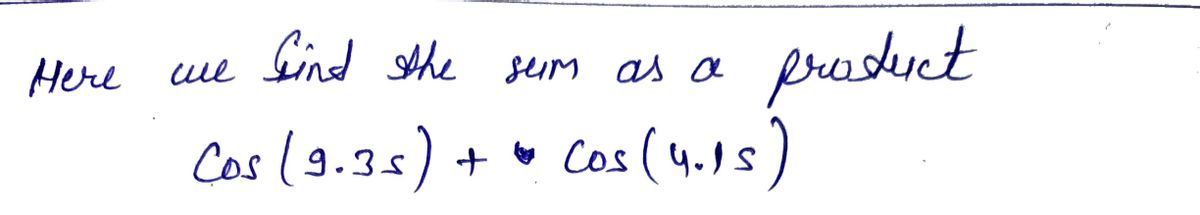 Here we find the sum as a product
Cos (9.3s) + Cos (4.1s)